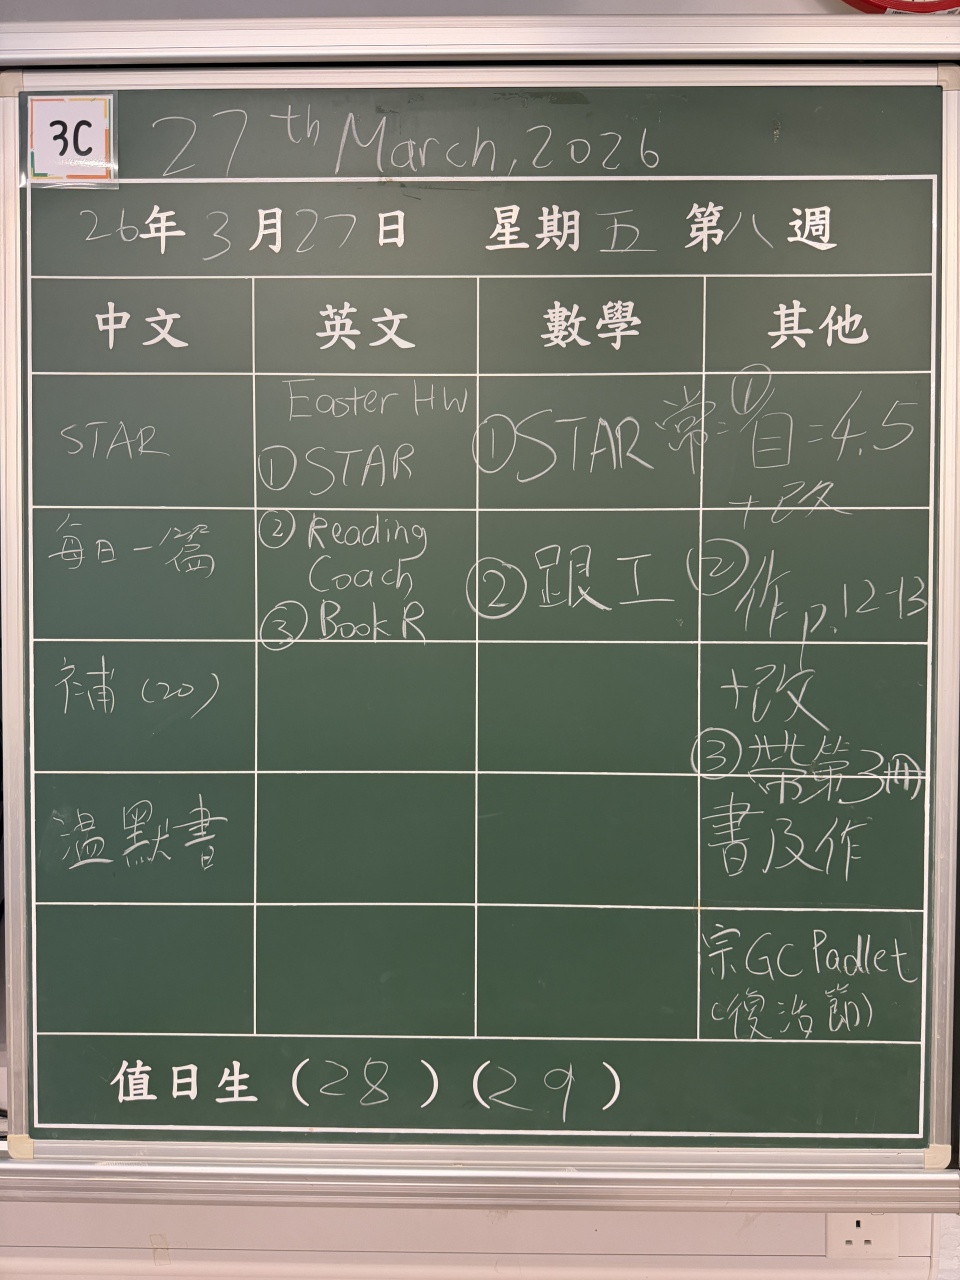 3C
27th March, 2026
26年3月27日 星期五 第八週
中文 英文 數學 其他
STAR
每日一篇
補(20)
溫默書
Easter HW
①STAR
②Reading
Coach
③Book R
①STAR
②跟工
常: ①自=4.5
+改
②作p.12-13
+改
③帶第3冊
書及作
宗GC Padlet
(復活節)
值日生(28)(29)